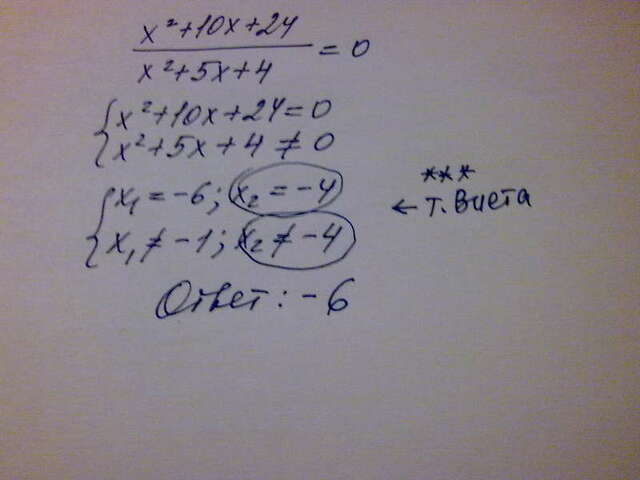 x²+10x+24
x²+5x+4 = 0
x²+10x+24=0
x²+5x+4≠0
x₁=-6; x₂=-4
x₁≠-1; x₂≠-4
***
← т. Виета
Ответ: -6